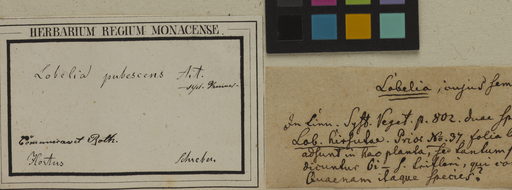 HERBARIUM REGIUM MONACENSE.
Lobelia pubescens Ait.
Communicavit Roth.
Hortus Schreber.
Lobelia, cujus sem
In Linn. Syst. Veget. p. 802. duae sp
Lob. hirsutae. Prior No. 37, folia
adsunt in hac planta, sed tantum
dicuntur
Quaenam itaque species?